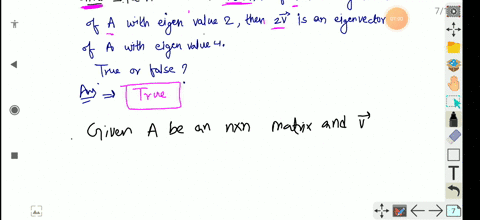 of A with eigen value 2, then 2v⃗ is an eigenvector
of A with eigen value 4.
True or false?
Ans ⇒ True
Given A be an nxn matrix and v⃗
7/
7
T